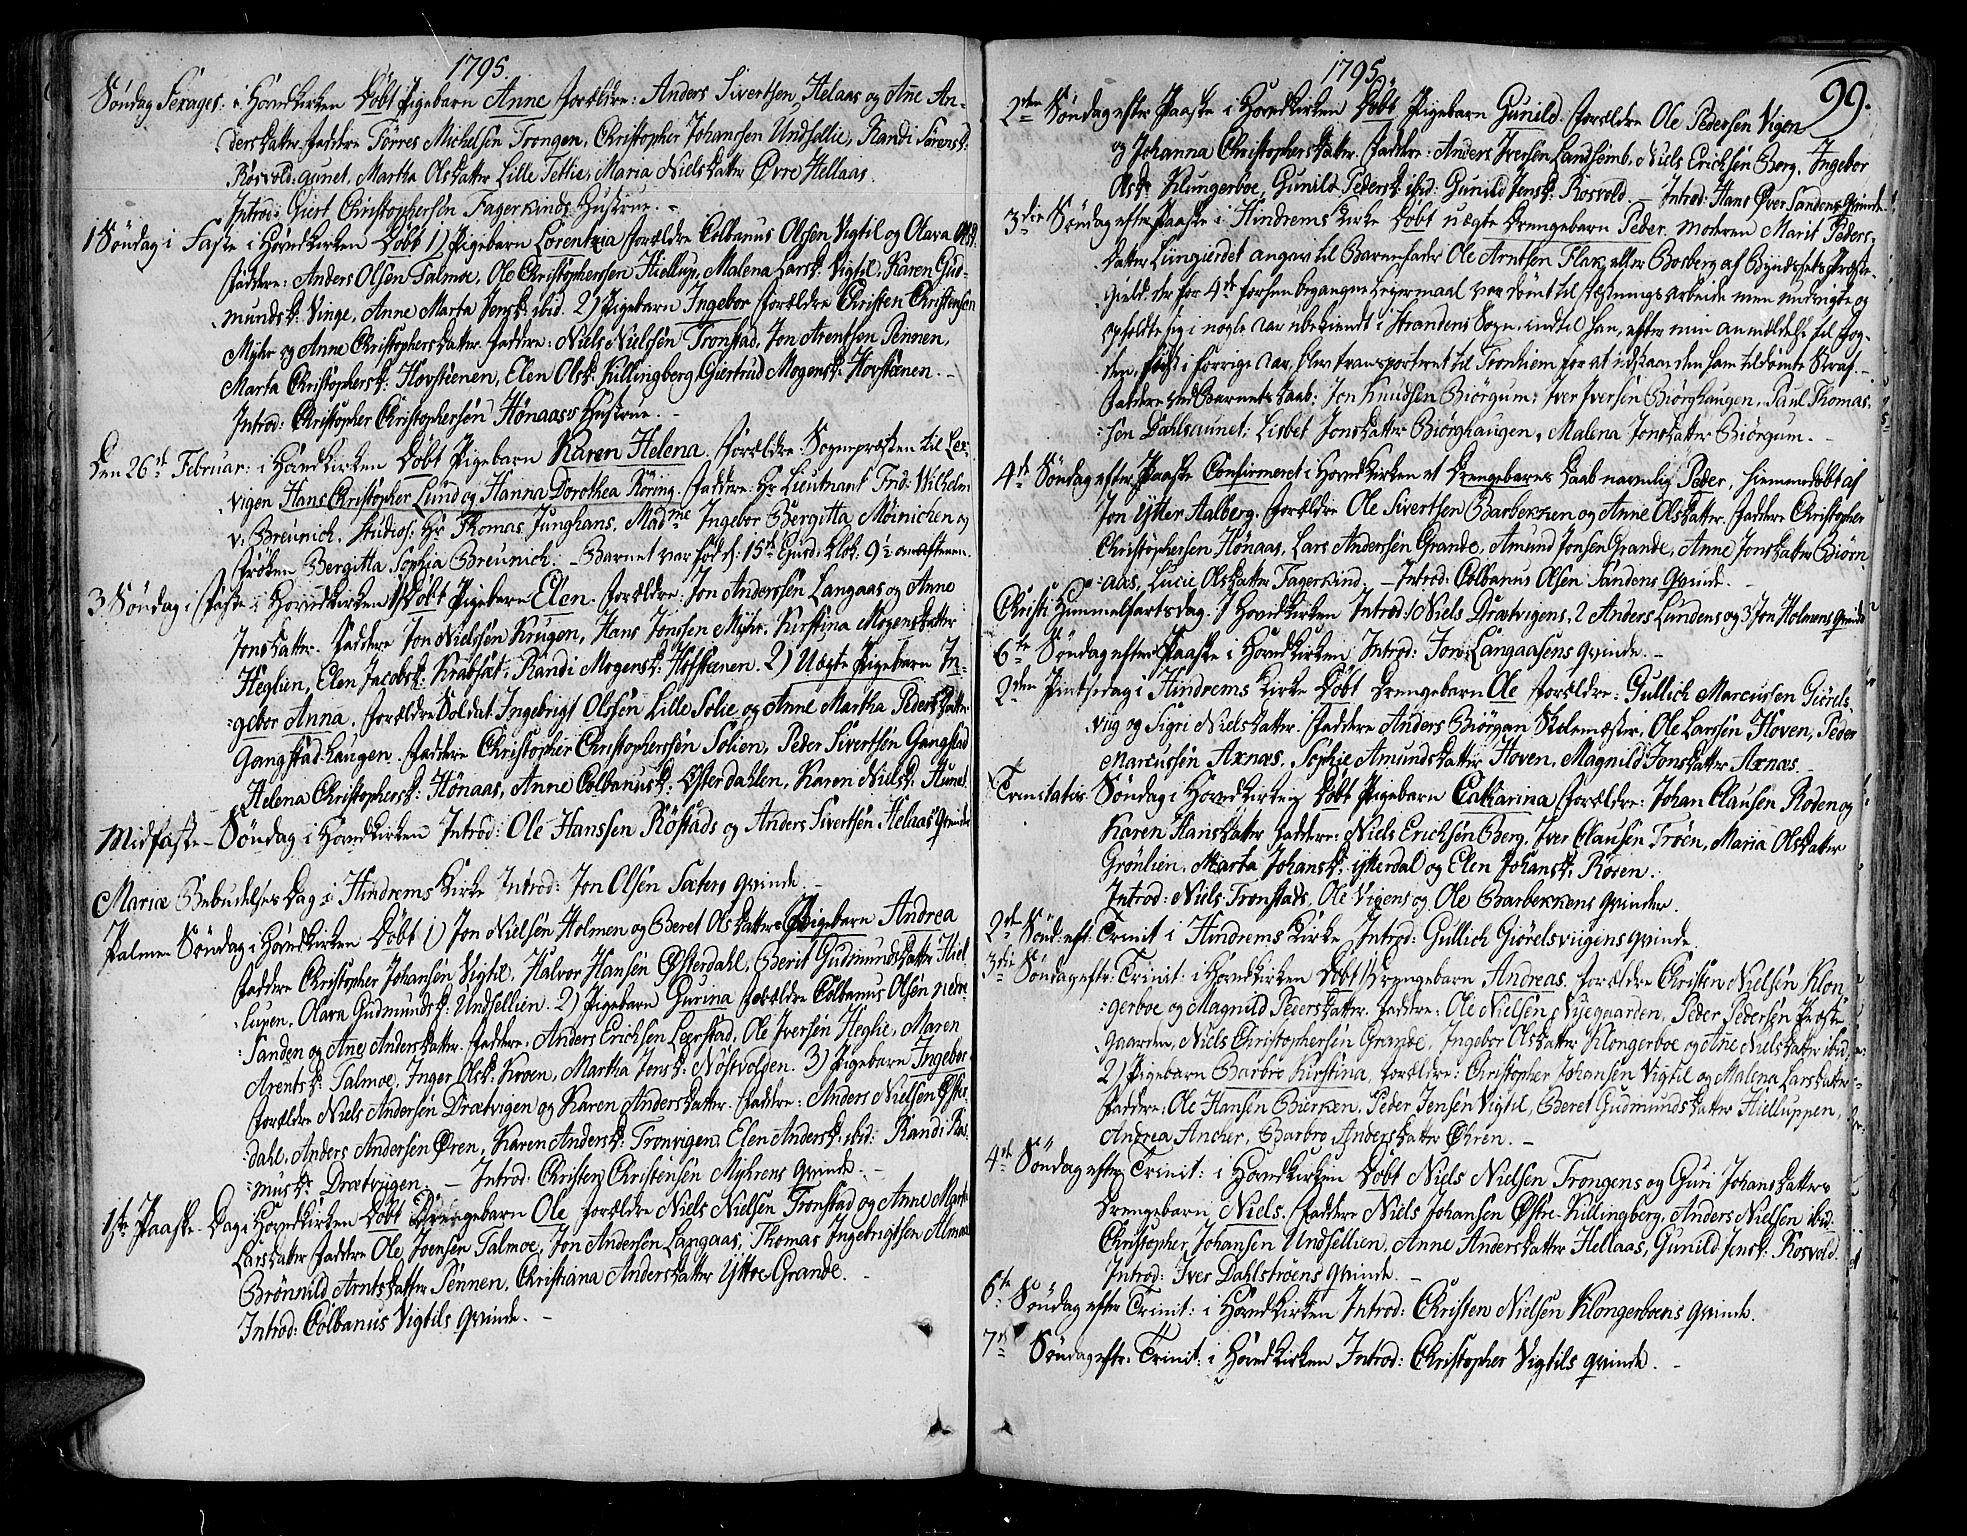 1795.
Søndag Sexages. i Hovedkirken Døbt Pigebarn Anne Forældre: Anders Sivertsen Helaas og Ane An-
dersdatter. Faddere Törres Michelsen Trongen, Christopher Johansen Undsellie, Randi Sörensd:
Rösvold: aunet, Martha Olsdatter Lille Tettlie, Maria Nielsdatter Øvre Hellaas.
Introd: Giert Christophersen Fagerkinds Hustrue. -
1 Søndag i Faste i Hovedkirken Døbt 1) Pigebarn Lorentzia Forældre Colbanus Olsen Vigtil og Olava Olsd:
Faddere: Anders Olsen Talmoe, Ole Christophersen Hiellup, Malena Larsd: Vigtil, Karen Gud-
mundsd: Vinge, Anne Marta Jensd: ibid. 2) Pigebarn Ingebor Forældre Christen Christensen
Myhr og Anne Christophersdatter. Faddere: Niels Nielsen Tronstad, Jon Arentsen Pennen,
Marta Christophersd: Hovsteenen, Elen Olsd: Killingberg, Giertrud Mogensd: Hovsteenen. -
Introd: Christopher Christophersen Hönaass Hustrue. -
Den 26de Februar: i Hovedkirken Døbt Pigebarn Karen Helena. Forældre: Sognepræsten til Lex-
vigen Hans Christopher Lund og Hanna Dorothea Röring. Faddere: Hr Lieutnant Frid: Wilhelm
v. Breunich, Studios: Hr Thomas Junghans, Madme Ingebor Bergitta Möinichen og
Fröken Bergitta Sophia Breunich. - Barnet var född d: 15de Ejusd: Klok: 9 1/2 om aftenen.
3 Søndag i Faste i Hovedkirken 1) Døbt Pigebarn Elen. Forældre: Jon Anderssen Langaas og Anne
Jonsdatter. Faddere Jon Nielssen Krugen, Hans Jonssen Myhr, Kirstina Mogensdatter
Heglien, Elen Jacobsd: Krabsæt, Randi Mogensd: Hofsteenen. 2) Uægte Pigebarn In-
gebor Anna. Forældre Soldat Ingebrigt Olsen Lille Solie og Anne Martha Pedersdatter
Gangstad-haugen. Faddere Christopher Christophersen Solien, Peder Sivertsen Gangstad
Helena Christophersd: Hönaas, Anne Colbanusd: Østerdahlen, Karen Nielsd: Aunet.
Midfaste-Søndag i Hovedkirken Introd: Ole Hanssen Röstads og Anders Sivertsen Helaas Qvinder
Mariæ Bebudelses Dag i Hindrems Kirke Introd: Jon Olsen Sæters Qvinde. -
Palme Søndag i Hovedkirken Døbt 1) Jon Nielsen Holmen og Beret Olsdatters Pigebarn Andrea
Faddere Christopher Johansen Vigtil, Halvor Hansen Østerdahl, Berit Gudmundsdatter Hiel-
lupen, Olava Gudmundsd: Undsellien. 2) Pigebarn Gurina Forældre Colbanus Olsen nedre
Sanden og Ane Andersdatter. Faddere: Anders Erichsen Leerstad, Ole Iversen Heglie, Maren
Arentsd: Talmoe, Inger Olsd: Kroen, Martha Jensd: Nöstvolden. 3) Pigebarn Ingebor
Forældre Niels Andersen Drætvigen og Karen Andersdatter. Faddere: Anders Nielsen Øster-
dahl, Anders Andersen Ören, Karen Andersd: Tronvigen, Elen Andersd: ibid: Randi Ras-
musd: Drætviigen. - Introd: Christen Christensen Myhrens Qvinde. -
1ste Paaske-Dag i Hovedkirken Døbt Drengebarn Ole Forældre Niels Nielsen Tronstad og Anne Marta
Larsdatter Faddere Ole Joensen Talmoe, Jon Andersen Langaas, Thomas Ingebrigtsen Almaas
Brönnild Arntsdatter Pennen, Christiana Andersdatter Yttre Grande. -
Introd: Colbanus Vigtils Qvinde. -
1795.
99.
2den Søndag efter Paaske i Hovedkirken Døbt Pigebarn Gunild. Forældre Ole Pedersen Vigen
og Johanna Christophersdatter. Faddere: Anders Iversen Landsemb, Niels Erichsen Berg, Ingebor
Olsd: Klungerboe, Gunild Pedersd: ibid: Gunild Jensd: Rosvold. - Introd: Hans Øver Sandens Qvinde.
3die Søndag efter Paaske i Hindrems Kirke Døbt uægte Drengebarn Peder. Moderen Marit Peders-
datter Liungierdet angav til Barnefader Ole Arntsen Flak eller Bosberg af Byndssets Præste-
gield, der for 4de Forseen begangne Leiermaal var dømt til Fæstnings Arbeide men undvigte og
opholdte sig i nogle Aar ubekiendt i Strandens Sogn, indtil han, efter min anmældelse til Fog-
den, først i forrige Aar, blev transporteret til Tronhiem for at udstaae den ham tildømte Straf. -
Faddere ved Barnets Daab: Jon Knudsen Biörgum, Iver Iversen Biörghaugen, Paul Thomas-
sön Dahlsaunet, Lisbet Jonsdatter Biörghaugen, Malena Jonsdatter Biörgum. -
4de Søndag efter Paaske Confirmeret i Hovedkirken et Drengebarns Daab navnlig Peder, hiemmedøbt af
Jon Ytter Aalberg. Forældre Ole Sivertsen Barbekken og Anne Olsdatter. Faddere Christopher
Christophersen Hönaas, Lars Andersen Grande, Amund Jonsen Grande, Anne Jonsdatter Biörn-
aas, Lucie Olsdatter Fagerkind. - Introd: Colbanus Olsen Sandens Qvinde. -
Christi Himmelfartsdag. I Hovedkirken Introd: 1 Niels Drætvigens, 2 Anders Lundens og 3 Jon Holmens Qvinder
6te Søndag efter Paaske i Hovedkirken Introd: Jon Langaasens Qvinde. -
2den Pintsedag i Hindrems Kirke Døbt Drengebarn Ole Forældre: Gullich Marcussen Giörels-
viig og Sigri Nielsdatter. Faddere Anders Biörgan Skolemæster, Ole Larssen Hoven, Peder
Marcussen Axnæs, Sophie Amundsdatter Hoven, Magnild Jonsdatter Axnæs. -
Trinitatis Søndag i Hovedkirken Døbt Pigebarn Catharina Forældre: Johan Clausen Roden og
Karen Hansdatter Faddere: Niels Erichsen Berg, Iver Clausen Tröen, Maria Olsdatter
Grönlien, Marta Johansd: Ytterdal og Elen Johansd: Rören.
Introd: Niels Tronstads, Ole Vigens og Ole Barbekkens Qvinder.
2den Sönd: eft: Trinit i Hindrems Kirke Introd: Gullich Giörelsviigens Qvinde.
3die Søndag eftr: Trinit: i Hovedkirken Døbt 1) Drengebarn Andreas. Forældre Christen Nielsen Klon-
gerboe og Magnild Pedersdatter. Faddere: Ole Nielsen Nysegaarden, Peder Pedersen Præste-
gaarden, Niels Christophersen Grande, Ingebor Olsdatter Klongerboe og Ane Nielsdatter ibid:
2) Pigebarn Barbro Kirstina, Forældre: Christopher Johansen Vigtil og Malena Larsdatter
Faddere: Ole Hansen Bierken, Peder Jensen Vigtil, Beret Gudmundsdatter Hielluppen,
Andrea Ancher, Barbro Andersdatter Öhren. -
4de Søndag efter Trinit: i Hovedkirken Døbt Niels Nielsen Trongens og Guri Johansdatters
Drengebarn Niels. Faddere Niels Johansen Østre-Killingberg, Anders Nielsen ibid:
Christopher Johansen Undsellien, Anne Andersdatter Hellaas, Gunild Jensd: Rosvold.
Introd: Iver Dahlströens Qvinde. -
6te Søndag efter Trinit: i Hovedkirken Introd: Christen Nielsen Klongerboens Qvinde.
7de Søndag eftr: Trinit: i Hovedkirken Introd: Christopher Vigtils Qvinde. -